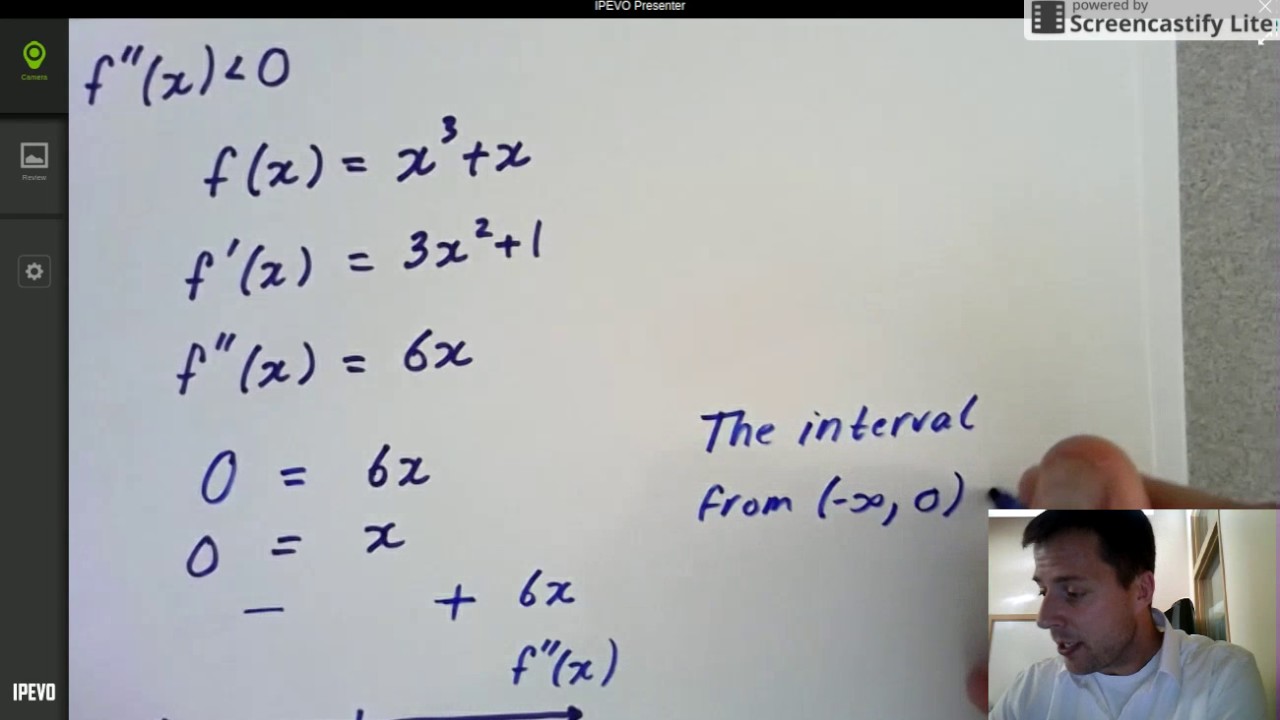 IPEVO Presenter
powered by
Screencastify Lite
Camera
Review
IPEVO
f''(x)<0
f(x) = x³+x
f'(x) = 3x²+1
f''(x) = 6x
0 = 6x
0 = x
− + 6x
f''(x)
The interval
from (-∞, 0)